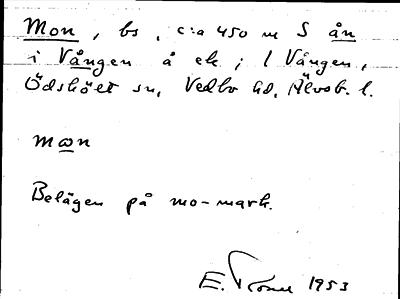 Mon, bs, c:a 450 m S ån
i Vången å ek; l Vången,
Ödskölt sn, Vedbo hd, Älvsb. l.
mωn
Belägen på mo-mark.
E. 1953